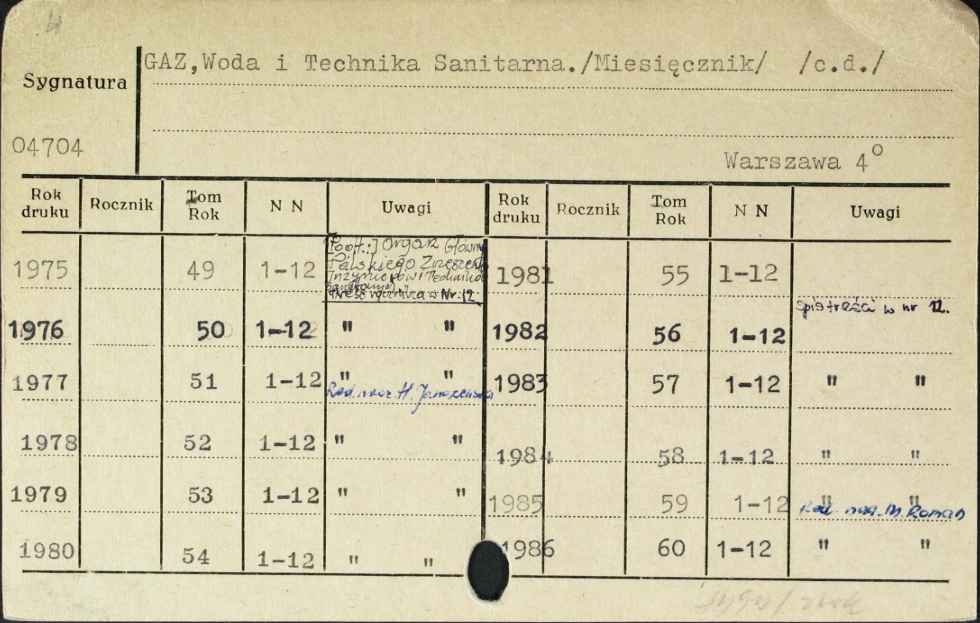 GAZ,Woda i Technika Sanitarna./Miesięcznik/ /c.d./
Sygnatura
04704
Warszawa 4°
Rok druku Rocznik Tom Rok N N Uwagi Rok druku Rocznik Tom Rok N N Uwagi
1975 49 1-12 Organ
Nr. 12.
1981 55 1-12
1976 50 1-12 " " 1982 56 1-12 spis treści w nr 12.
1977 51 1-12 " " 1983 57 1-12 " "
Red. nacz. H.
1978 52 1-12 " " 1984 58 1-12 " "
1979 53 1-12 " " 1985 59 1-12 " "
Red. nacz. M. Roman
1980 54 1-12 " " 1986 60 1-12 " "